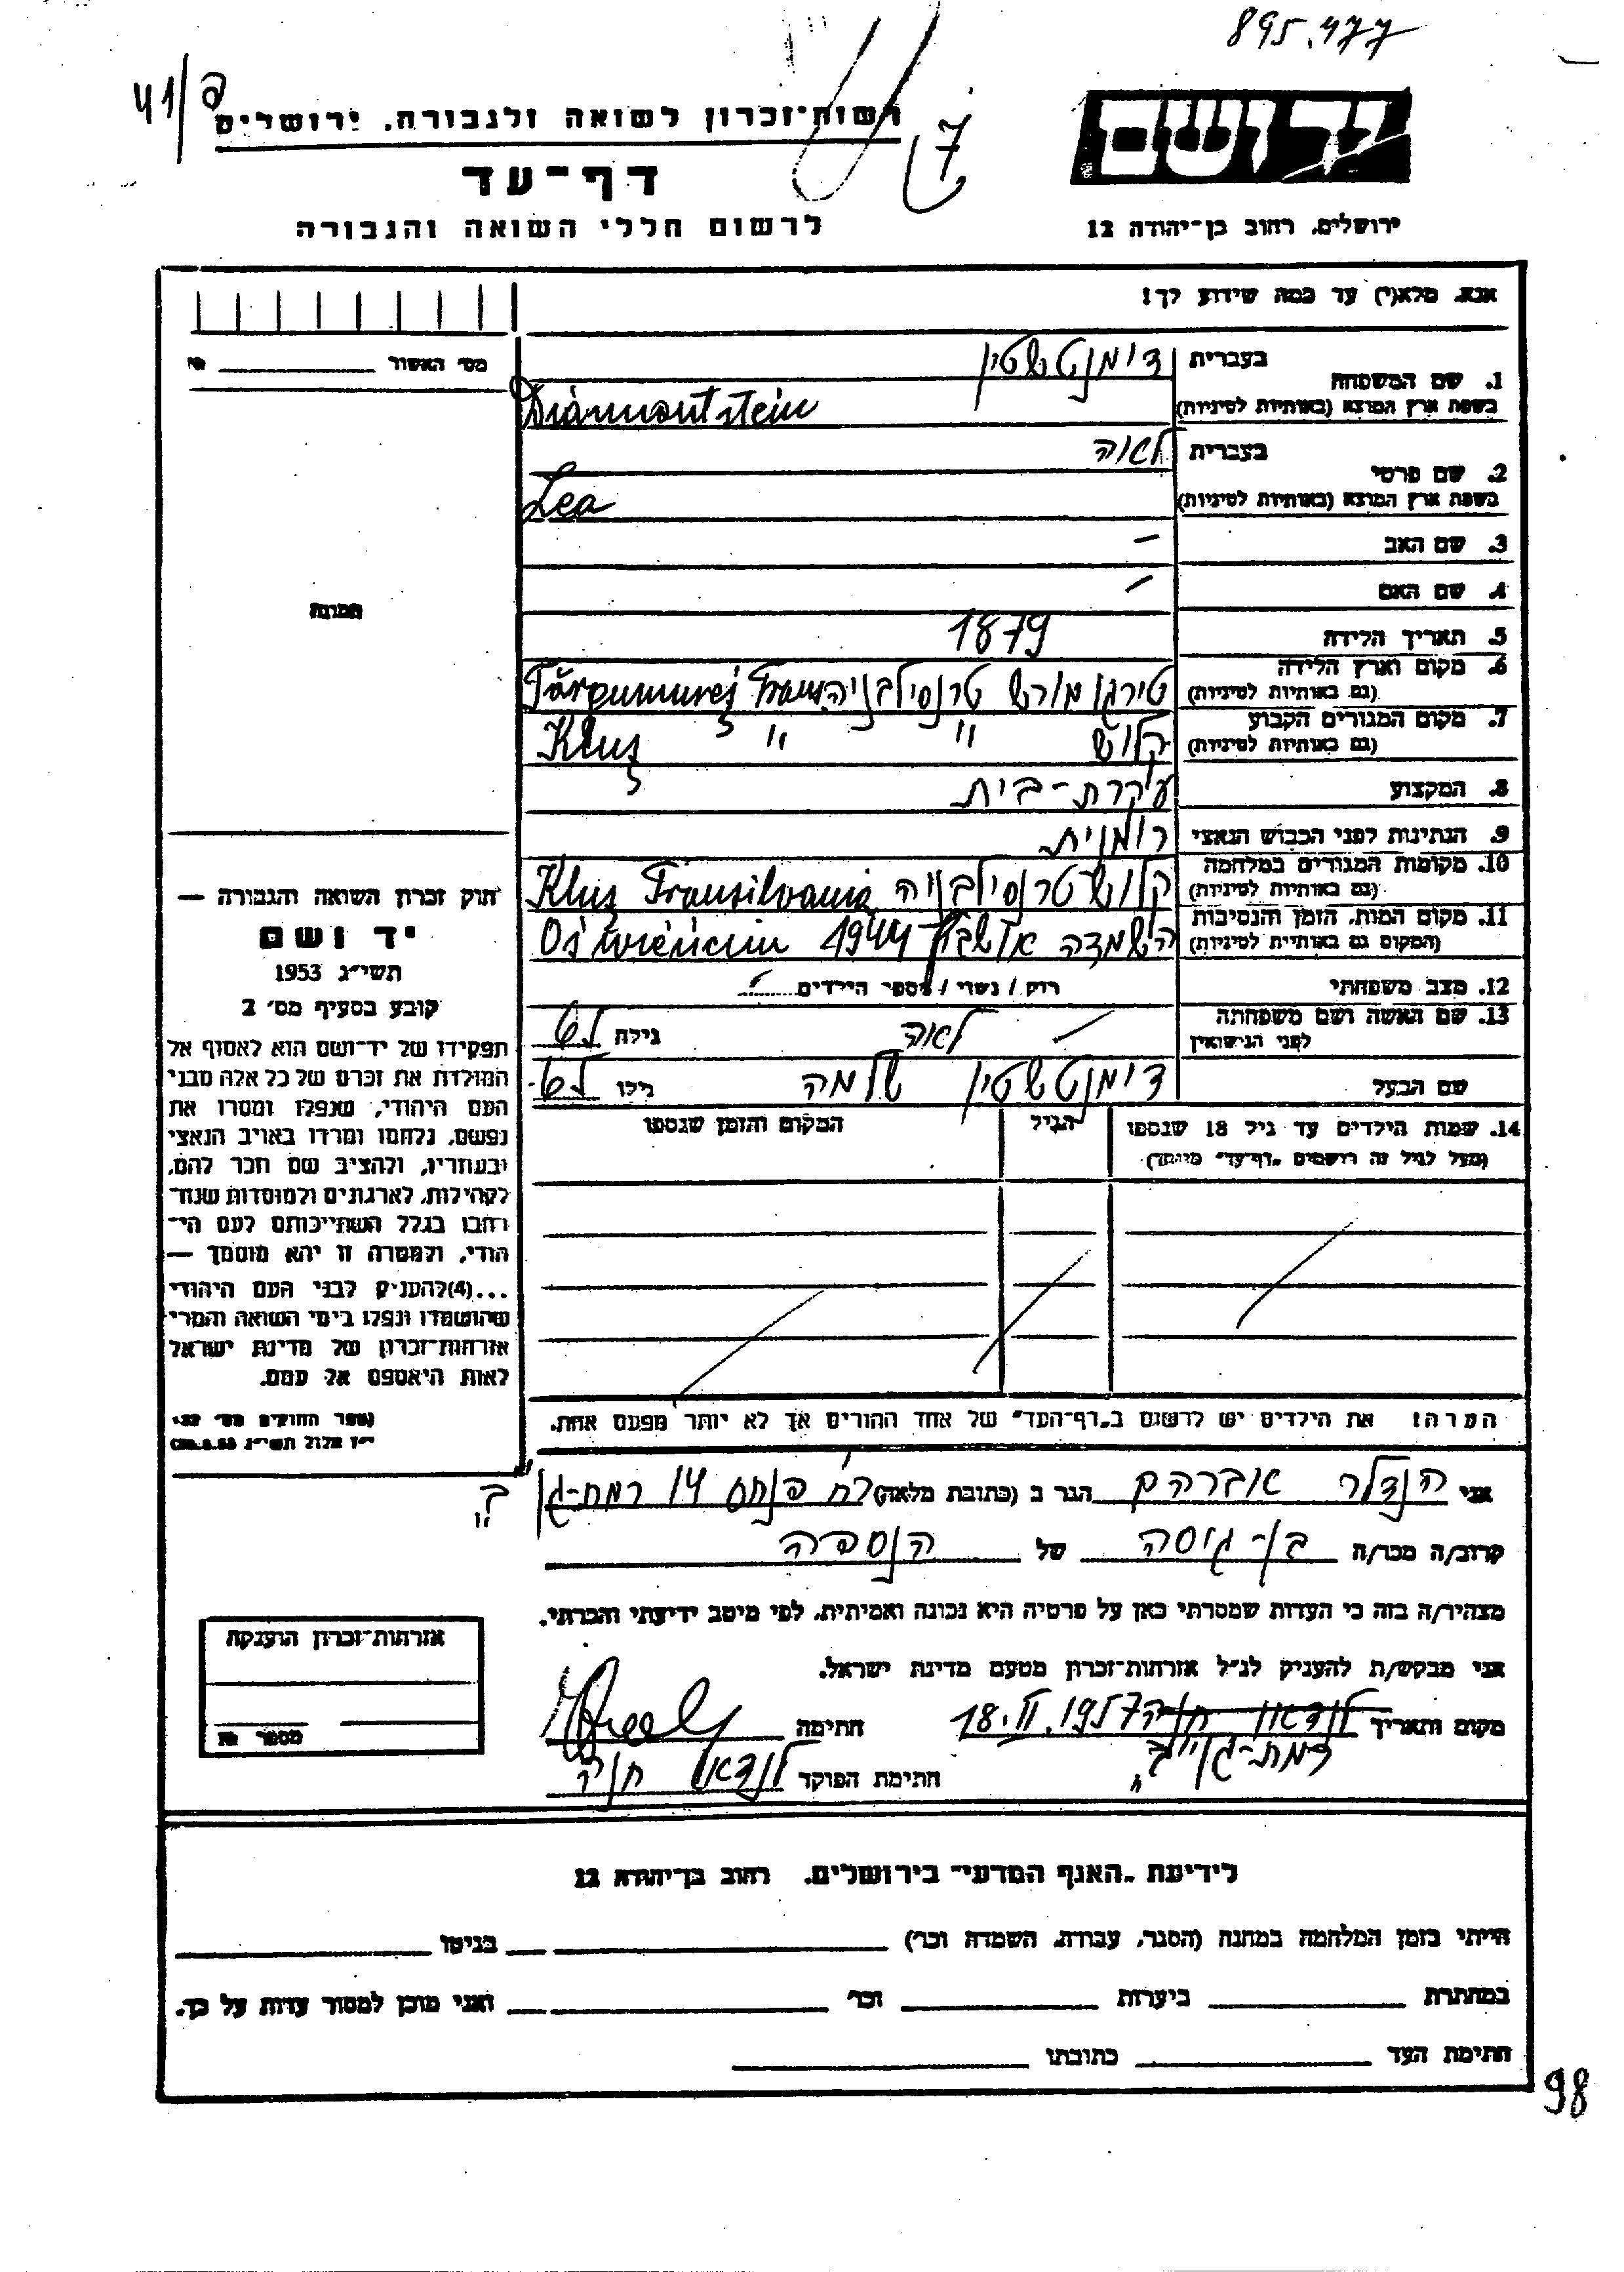 895.477
41/ס
רשות־זכרון לשואה ולגבורה, ירושלים
7
יד ושם
דף־עד
לרשום חללי השואה והגבורה
ירושלים, רחוב בן־יהודה 12
אנא, מלא(י) עד כמה שידוע לך!
מס׳ האשור №
1. שם המשפחה
בעברית דימנטשטין
בשפת ארץ המוצא (באותיות לטיניות) Diamantstein
2. שם פרטי
בעברית לאוה
בשפת ארץ המוצא (באותיות לטיניות) Lea
3. שם האב –
4. שם האם –
תמונה
5. תאריך הלידה 1879
6. מקום וארץ הלידה
(גם באותיות לטיניות) טירגו מורש טרנסילבניה Trans. Târgumureș
7. מקום המגורים הקבוע
(גם באותיות לטיניות) קלוש " " Kluș
8. המקצוע עקרת-בית
9. הנתינות לפני הכבוש הנאצי רומנית
10. מקומות המגורים במלחמה
(גם באותיות לטיניות) קלוש טרנסילבניה Kluș Transilvania
11. מקום המות, הזמן והנסיבות
(המקום גם באותיות לטיניות) השמדה אושבין 1944 Oświęcim
12. מצב משפחתי רוק / נשוי / מספר הילדים
13. שם האשה ושם משפחתה
לפני הנישואין לאוה גילה
שם הבעל דימנטשטין שלמה גילו
14. שמות הילדים עד גיל 18 שנספו
(מעל לגיל זה רושמים „דף־עד״ מיוחד)
הגיל
המקום והזמן שנספו
הערה! את הילדים יש לרשום ב„דף־העד״ של אחד ההורים אך לא יותר מפעם אחת.
חוק זכרון השואה והגבורה —
יד ושם
תשי״ג 1953
קובע בסעיף מס׳ 2
תפקידו של יד־ושם הוא לאסוף אל
המולדת את זכרם של כל אלה מבני
העם היהודי, שנפלו ומסרו את
נפשם, נלחמו ומרדו באויב הנאצי
ובעוזריו, ולהציב שם וזכר להם,
לקהילות, לארגונים ולמוסדות שנח־
רחבו בגלל השתייכותם לעם הי־
הודי, ולמטרה זו יהא מוסמך —
...(4) להעניק לבני העם היהודי
שהושמדו ונפלו בימי השואה והמרי
אזרחות־זכרון של מדינת ישראל
לאות היאספם אל עמם.
(ספר החוקים מס׳ 132,
י״ז אלול תשי״ג 28.8.53)
אני הנדלר אברהם הגר ב (כתובת מלאה) רח׳ פנחס 14 רמת-גן
קרוב/ה מכר/ה בן-גיסה של הנספה
מצהיר/ה בזה כי העדות שמסרתי כאן על פרטיה היא נכונה ואמיתית, לפי מיטב ידיעתי והכרתי.
אני מבקש/ת להעניק לנ״ל אזרחות־זכרון מטעם מדינת ישראל.
מקום ותאריך לנדאו חוה 18.II.1957 חתימה
רמת-גן
חתימת הפוקד לנדאו חוה
אזרחות־זכרון הוענקה
מספר №
לידיעת „האגף המדעי״ בירושלים, רחוב בן־יהודה 12
הייתי בזמן המלחמה במחנה (הסגר, עבודה, השמדה וכר׳) בגיטו
במחתרת ביערות וכר׳ ואני מוכן למסור עדות על כך.
חתימת העד כתובתו
98